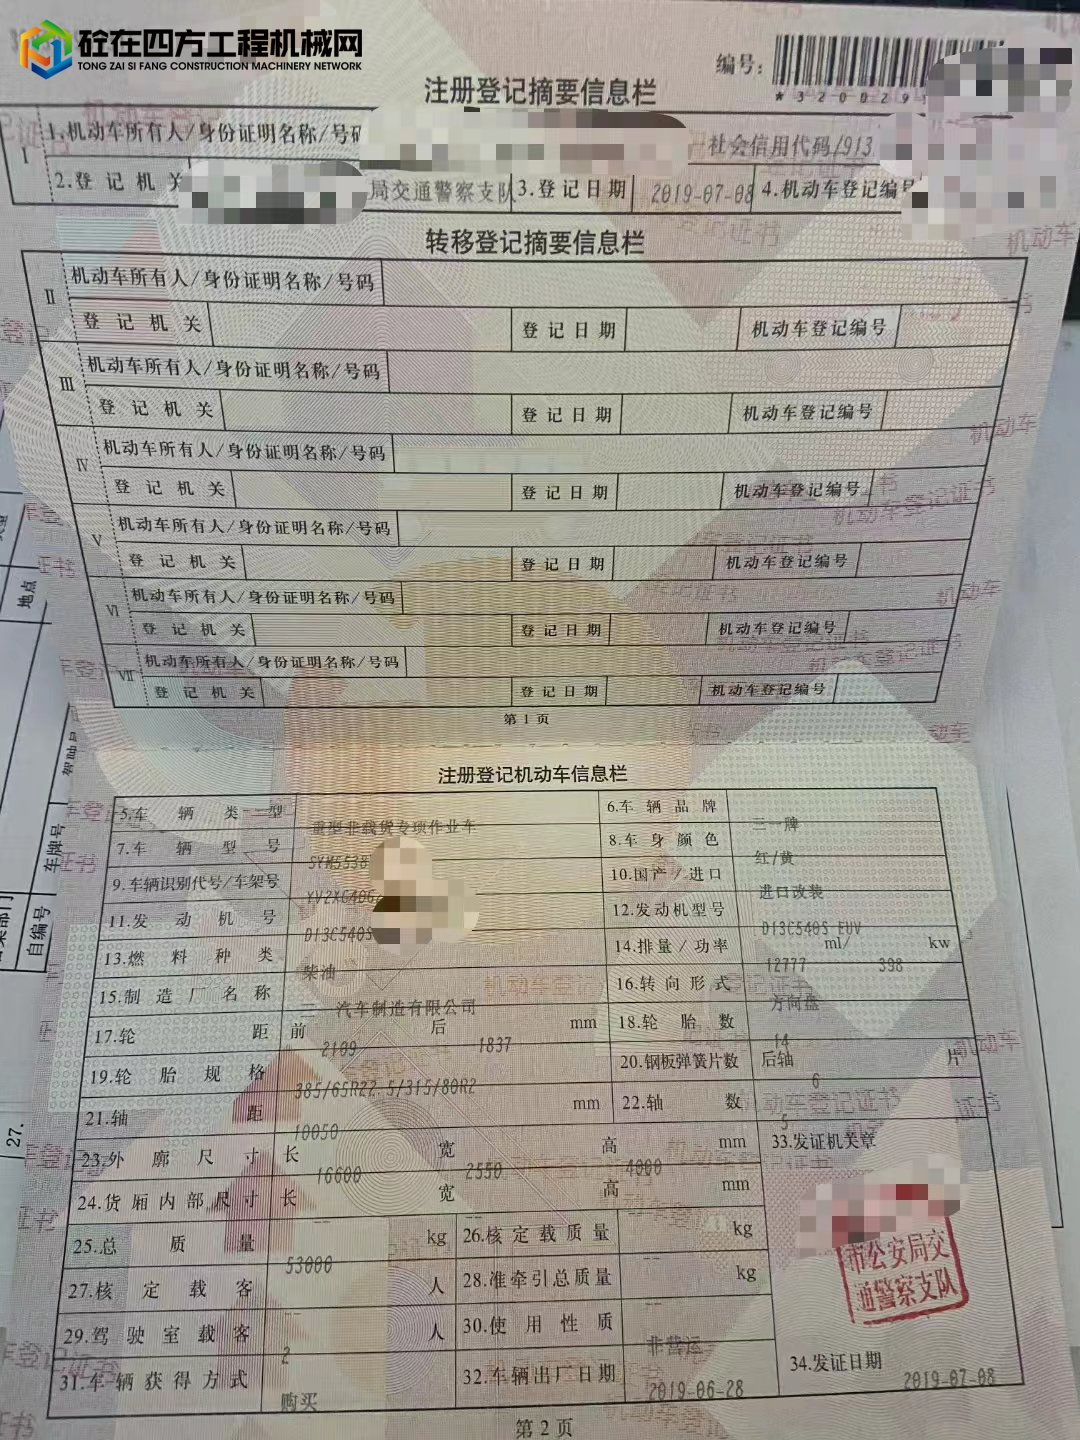 砼在四方工程机械网
TONG ZAI SI FANG CONSTRUCTION MACHINERY NETWORK
编号:
*320029
注册登记摘要信息栏
I
1.机动车所有人/身份证明名称/号码
社会信用代码/913
2.登记机关
局交通警察支队
3.登记日期
2019-07-08
4.机动车登记编号
转移登记摘要信息栏
II
机动车所有人/身份证明名称/号码
登记机关
登记日期
机动车登记编号
III
机动车所有人/身份证明名称/号码
登记机关
登记日期
机动车登记编号
IV
机动车所有人/身份证明名称/号码
登记机关
登记日期
机动车登记编号
V
机动车所有人/身份证明名称/号码
登记机关
登记日期
机动车登记编号
VI
机动车所有人/身份证明名称/号码
登记机关
登记日期
机动车登记编号
VII
机动车所有人/身份证明名称/号码
登记机关
登记日期
机动车登记编号
第1页
注册登记机动车信息栏
5.车辆类型
重型非载货专项作业车
6.车辆品牌
三一牌
7.车辆型号
SYM5538
8.车身颜色
红/黄
9.车辆识别代号/车架号
YV2XG40G
10.国产/进口
进口改装
11.发动机号
D13C540S
12.发动机型号
D13C540S EUV
13.燃料种类
柴油
14.排量/功率
12777 ml/ 398 kw
15.制造厂名称
三一汽车制造有限公司
16.转向形式
方向盘
17.轮距
前 2109 后 1837 mm
18.轮胎数
14
19.轮胎规格
385/65R22.5/315/80R2
20.钢板弹簧片数
后轴 6 片
21.轴距
10050 mm
22.轴数
5
23.外廓尺寸
长 16600 宽 2550 高 4000 mm
24.货厢内部尺寸
长 -- 宽 高 mm
25.总质量
53000 kg
26.核定载质量
-- kg
27.核定载客
-- 人
28.准牵引总质量
-- kg
29.驾驶室载客
2 人
30.使用性质
非营运
31.车辆获得方式
购买
32.车辆出厂日期
2019-06-28
33.发证机关章
市公安局交
通警察支队
34.发证日期
2019-07-08
第2页
地点
车牌号
自编号
27.